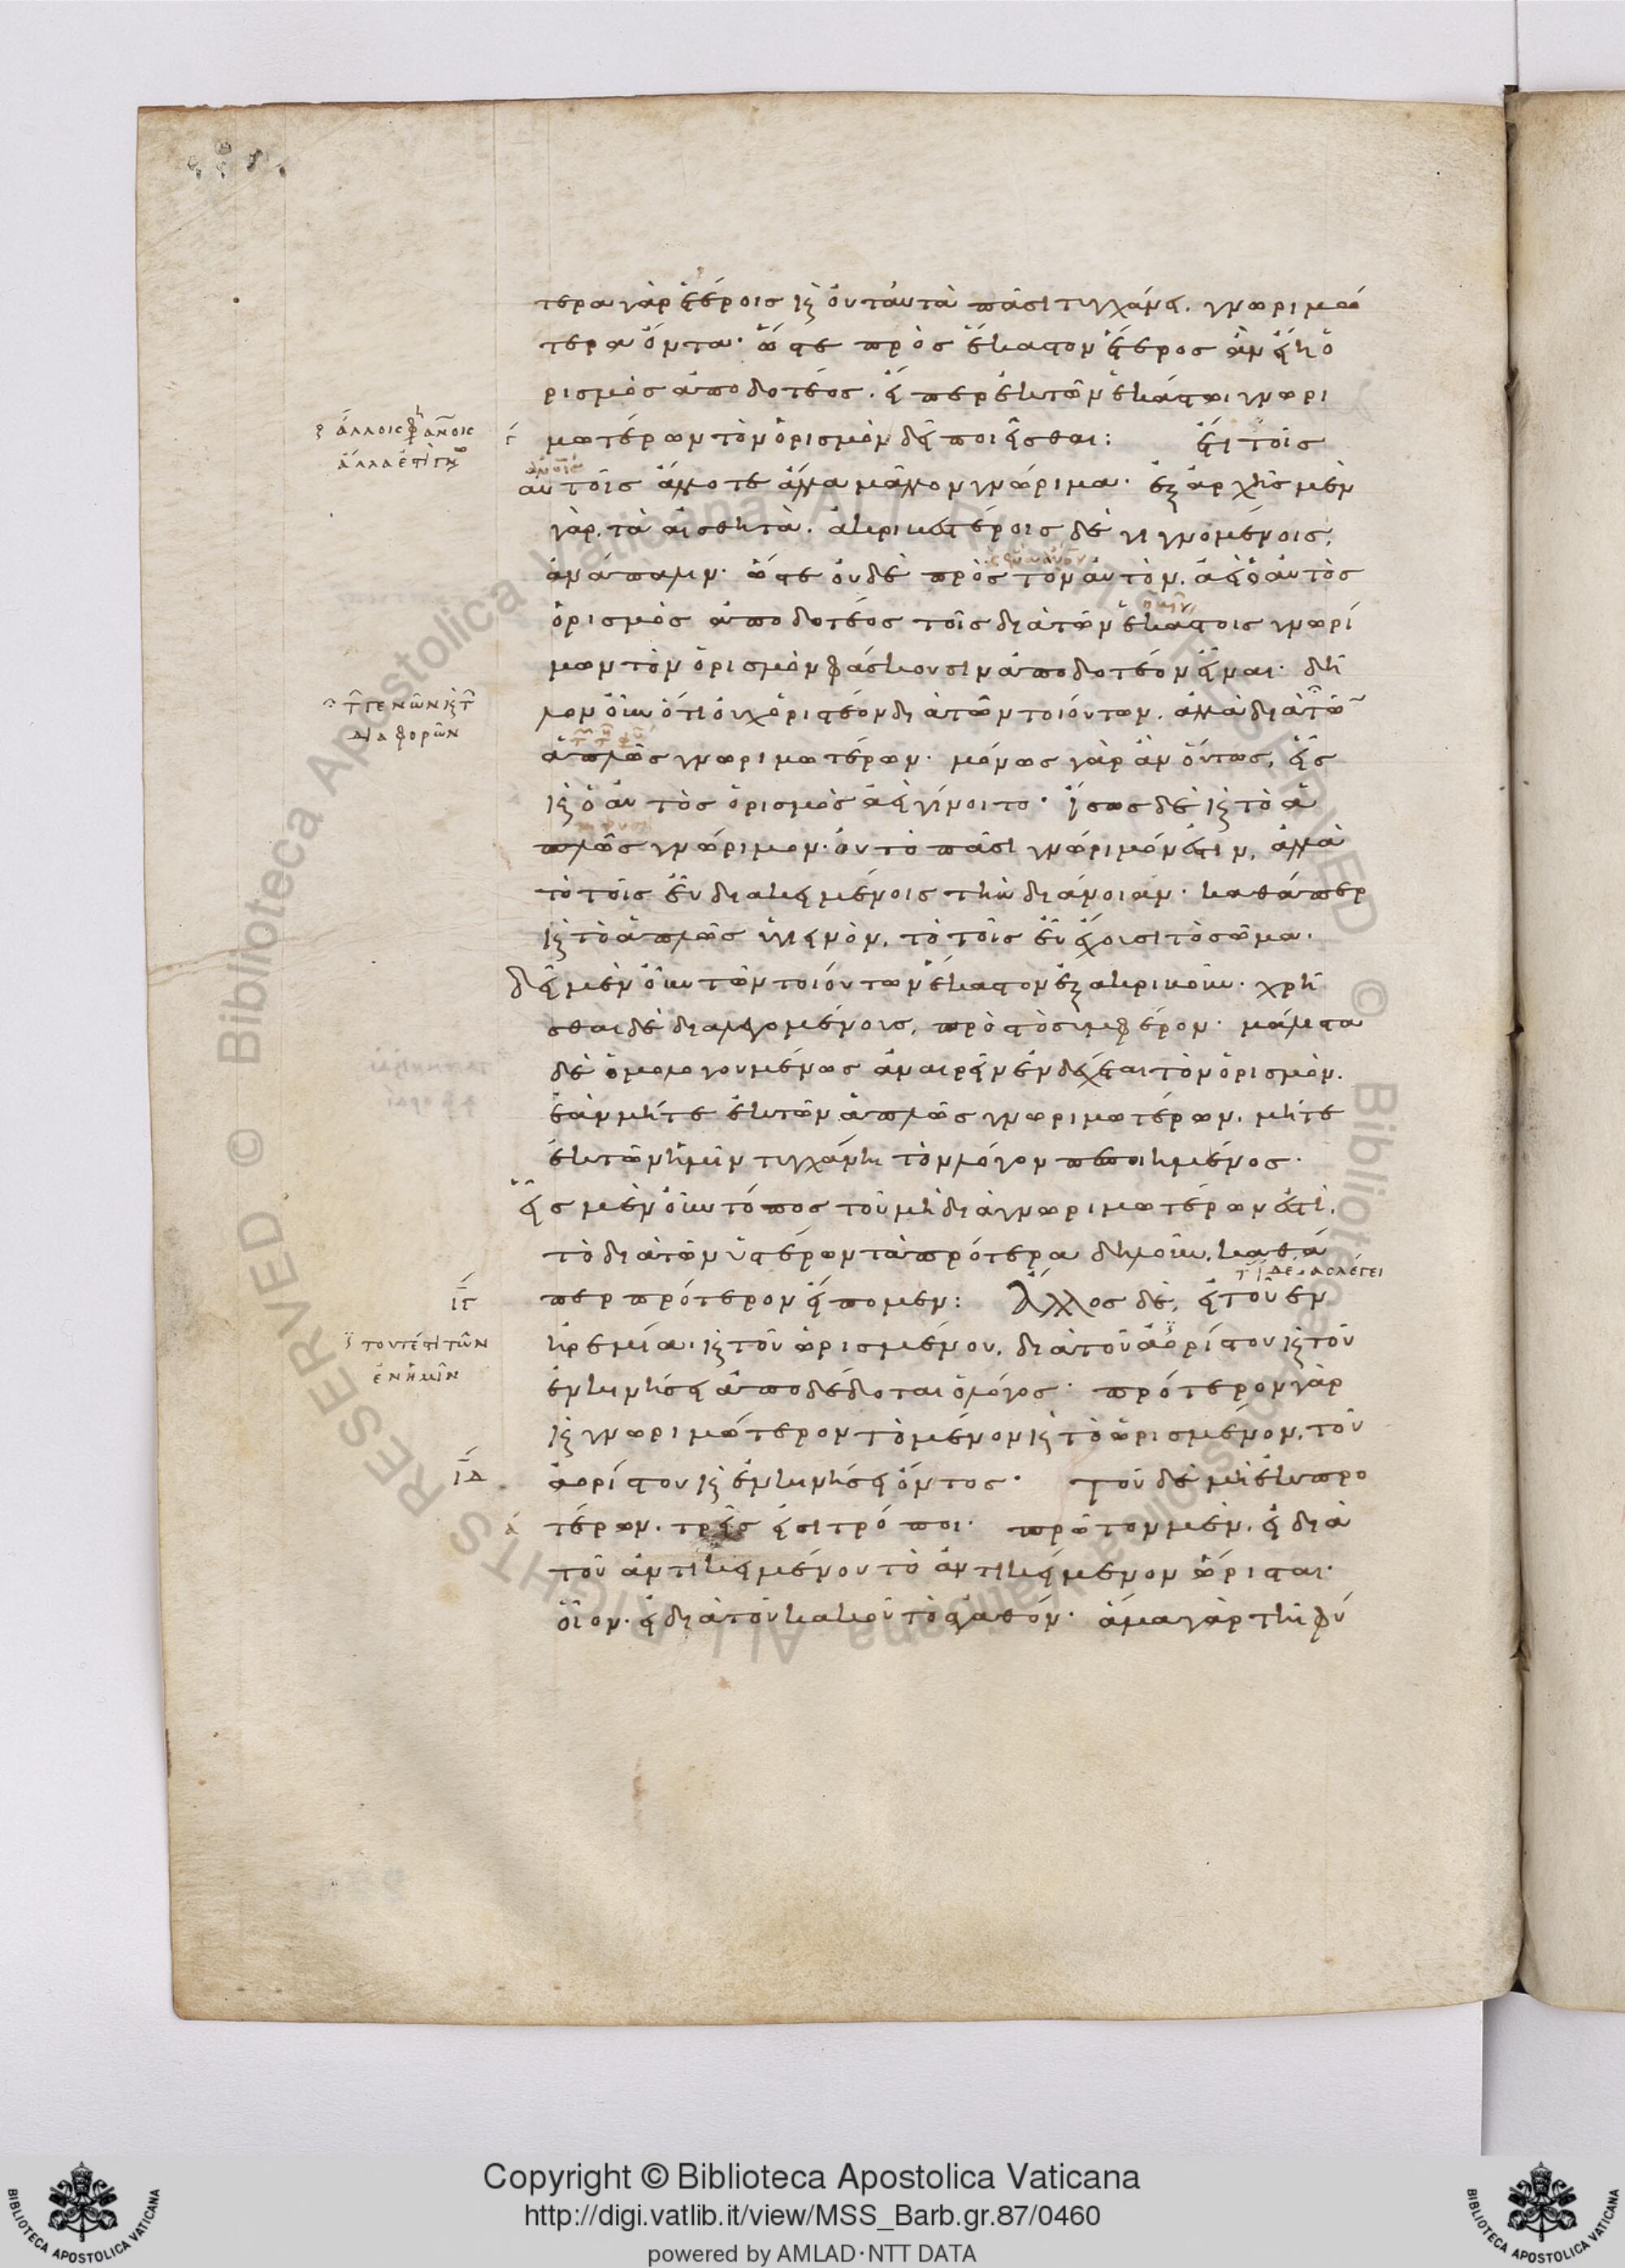 τερα γὰρ ἑτέροις καὶ οὐ ταὐτὰ πᾶσι τυγχάνει. γνωριμώ
τερα ὄντα· ὥστε πρὸς ἕκαστον ἕτερος ἂν εἴη ὁ
ρισμὸς ἀποδοτέος. εἴπερ ἐκ τῶν ἑκάστωι γνωρι
μωτέρων τὸν ὁρισμὸν δεῖ ποιεῖσθαι: ἔτι τοῖς
αὐτοῖς ἄλλοτε ἄλλα μᾶλλον γνώριμα· ἐξ ἀρχῆς μὲν
γὰρ. τὰ αἰσθητὰ. ἀκριβεστέροις δὲ γιγνομένοις,
ἀνάπαλιν· ὥστε οὐδὲ πρὸς τὸν αὐτὸν. ἀεὶ ὁ αὐτὸς
ὁρισμὸς ἀποδοτέος τοῖς διὰ τῶν ἑκάστοις γνωρί
μων τὸν ὁρισμὸν φάσκουσιν ἀποδοτέον εἶναι· δῆ
λον οὖν ὅτι οὐχ ὁριστέον διὰ τῶν τοιούτων. ἀλλὰ διὰ τῶν
ἁπλῶς γνωριμωτέρων· μόνως γὰρ ἂν οὕτως, εἷς
καὶ ὁ αὐτὸς ὁρισμὸς ἀεὶ γίνοιτο· ἴσως δὲ καὶ τὸ ἁ
πλῶς γνώριμον· οὐ τὸ πᾶσι γνώριμόν ἐστιν, ἀλλὰ
τὸ τοῖς εὖ διακειμένοις τὴν διάνοιαν· καθάπερ
καὶ τὸ ἁπλῶς ὑγιεινὸν, τὸ τοῖς εὖ ἔχουσι τὸ σῶμα.
δεῖ μὲν οὖν τῶν τοιούτων ἕκαστον ἐξακριβοῦν· χρῆ
σθαι δὲ διαλεγομένους, πρὸς τὸ συμφέρον· μάλιστα
δὲ ὁμολογουμένως ἀναιρεῖν ἐνδέχεται τὸν ὁρισμὸν.
ἐὰν μήτε ἐκ τῶν ἁπλῶς γνωριμωτέρων. μήτε
ἐκ τῶν ἡμῖν τυγχάνῃ τὸν λόγον πεποιημένος·
εἷς μὲν οὖν τόπος τοῦ μὴ διὰ γνωριμωτέρων ἐστὶ.
τὸ διὰ τῶν ὑστέρων τὰ πρότερα δηλοῦν. καθά
περ πρότερον εἴπομεν: Ἄλλος δὲ, εἰ τοῦ ἐν
ἠρεμία. καὶ τοῦ ὡρισμένου. διὰ τοῦ ἀορίστου καὶ τοῦ
ἐν κινήσει ἀποδέδοται ὁ λόγος· πρότερον γὰρ
καὶ γνωριμώτερον τὸ μένον καὶ τὸ ὡρισμένον, τοῦ
ἀορίστου καὶ ἐν κινήσει ὄντος· Τοῦ δὲ μὴ ἐκ προ
τέρων. τρεῖς εἰσι τρόποι· πρῶτον μὲν. εἰ διὰ
τοῦ ἀντικειμένου τὸ ἀντικείμενον ὥρισται·
οἷον. εἰ διὰ τοῦ κακοῦ τὸ ἀγαθόν· ἅμα γὰρ τῆι φύ
τῶν γενῶν καὶ τῶν
διαφορῶν
ιγ
τουτέστι τῶν
ἐν ἡμῖν
ιδ
Copyright © Biblioteca Apostolica Vaticana
http://digi.vatlib.it/view/MSS_Barb.gr.87/0460
powered by AMLAD·NTT DATA
BIBLIOTECA APOSTOLICA VATICANA
BIBLIOTECA APOSTOLICA VATICANA